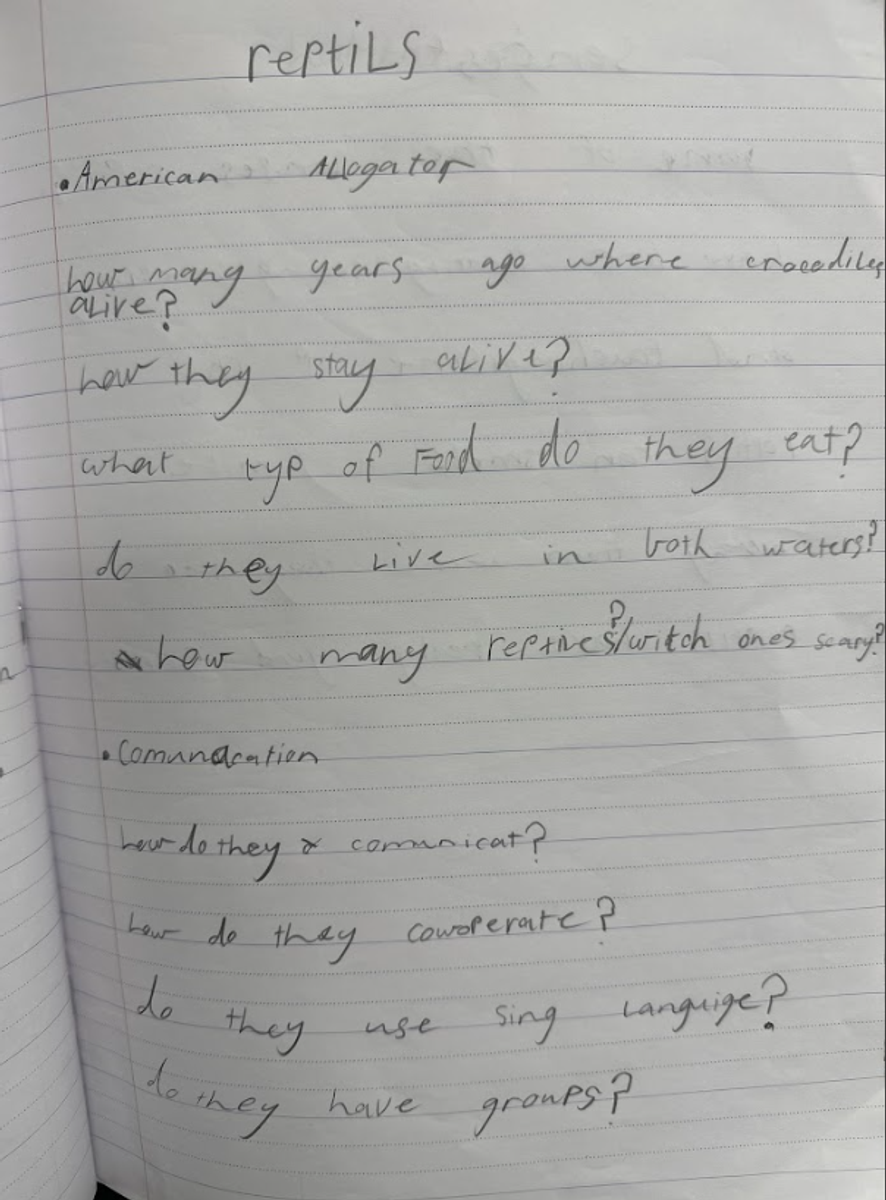 reptils
• American Allogator
how many years ago where crocodiles
alive?
how they stay alive?
what typ of Food do they eat?
do they Live in both waters?
how many reptires?/witch ones scary?
• Comunacation
how do they comunicat?
how do they cowoperate?
do they use sing Languige?
do they have groups?